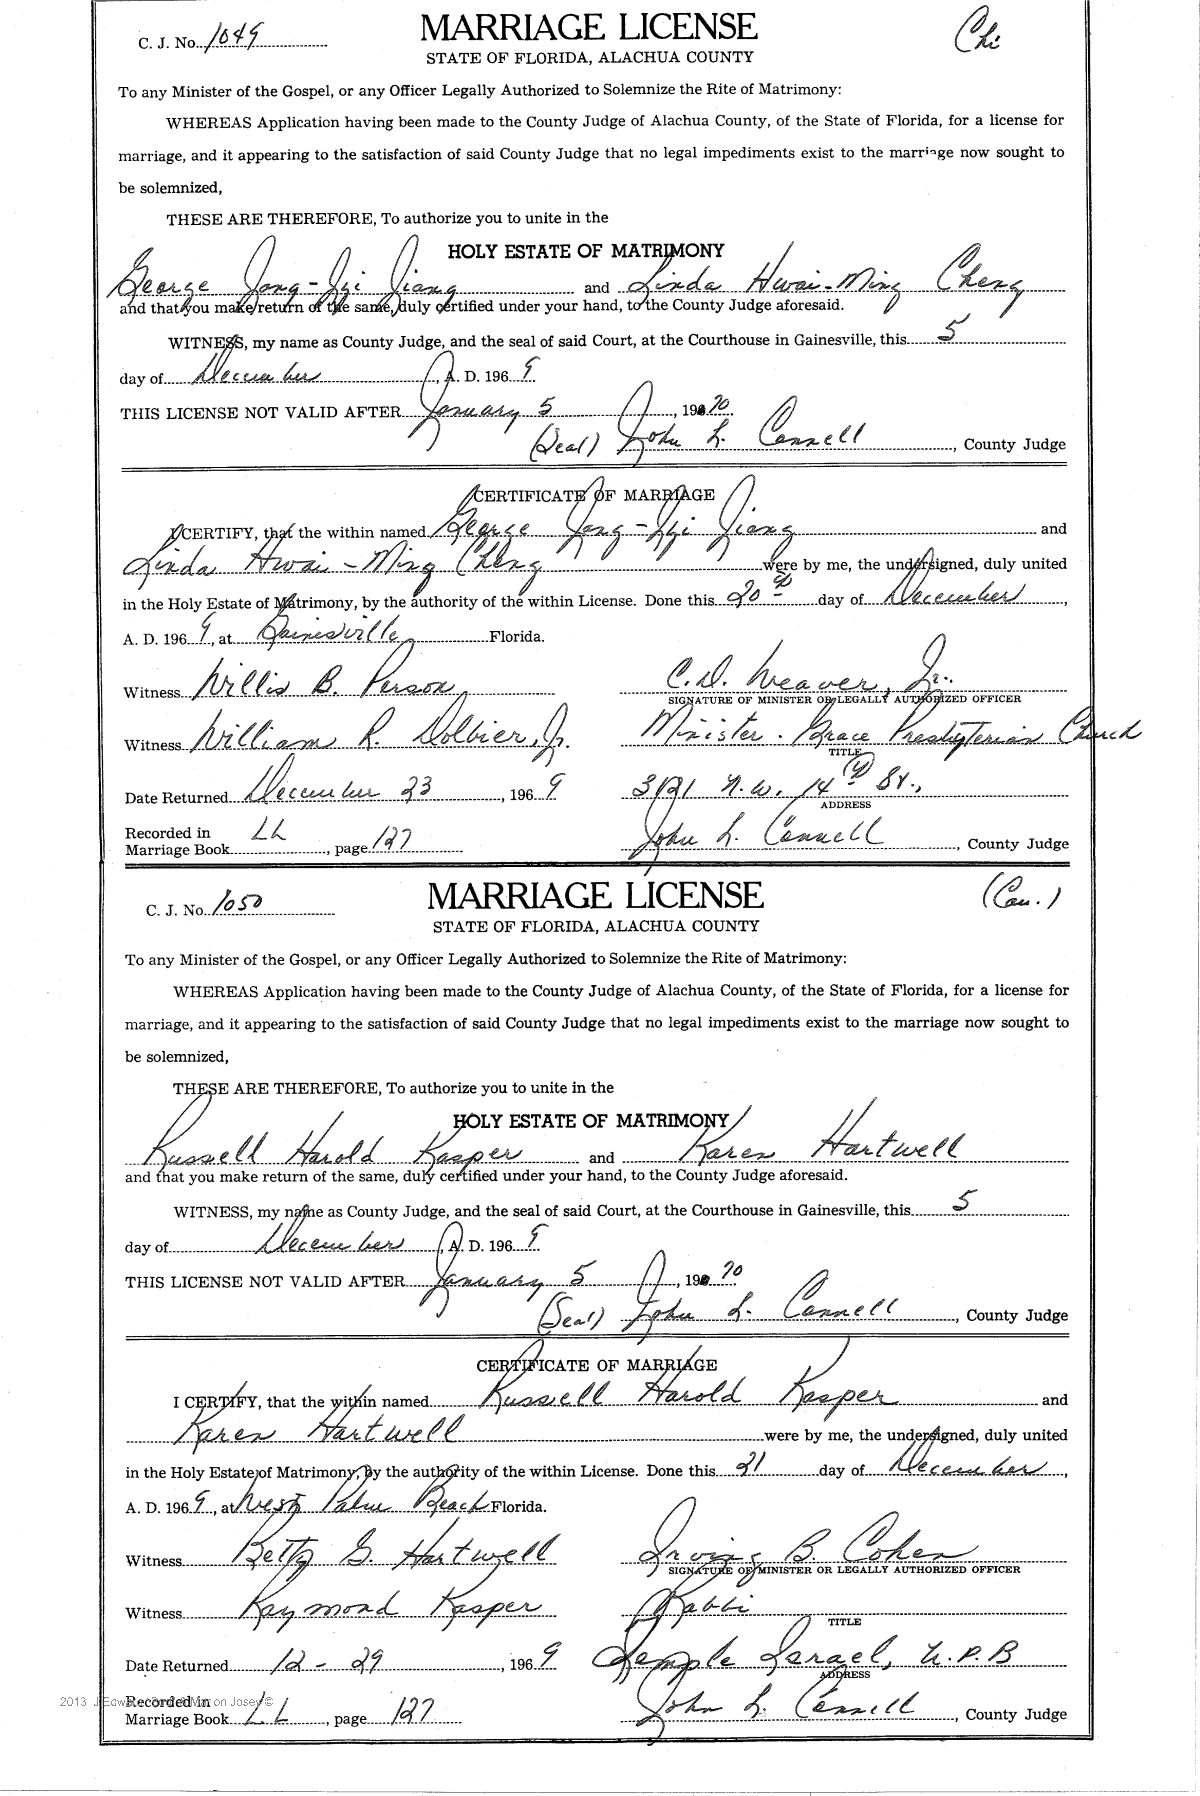 C. J. No. 1049
MARRIAGE LICENSE
Chi
STATE OF FLORIDA, ALACHUA COUNTY
To any Minister of the Gospel, or any Officer Legally Authorized to Solemnize the Rite of Matrimony:
WHEREAS Application having been made to the County Judge of Alachua County, of the State of Florida, for a license for
marriage, and it appearing to the satisfaction of said County Judge that no legal impediments exist to the marriage now sought to
be solemnized,
THESE ARE THEREFORE, To authorize you to unite in the
HOLY ESTATE OF MATRIMONY
George Jiang and Linda Hwai-Ming Cheng
and that you make return of the same, duly certified under your hand, to the County Judge aforesaid.
WITNESS, my name as County Judge, and the seal of said Court, at the Courthouse in Gainesville, this 5
day of December, A. D. 1969
THIS LICENSE NOT VALID AFTER January 5, 1970
(Seal) John L. Connell, County Judge
CERTIFICATE OF MARRIAGE
I CERTIFY, that the within named George Jiang and
Linda Hwai-Ming Cheng were by me, the undersigned, duly united
in the Holy Estate of Matrimony, by the authority of the within License. Done this 20th day of December,
A. D. 1969, at Gainesville Florida.
Witness Willis B. Person C. D. Weaver, Jr.
SIGNATURE OF MINISTER OR LEGALLY AUTHORIZED OFFICER
Witness William R. Dolbier, Jr. Minister - Grace Presbyterian Church
TITLE
Date Returned December 23, 1969 3121 N.W. 14th St.,
ADDRESS
Recorded in
Marriage Book LL, page 127 John L. Connell, County Judge
C. J. No. 1050
MARRIAGE LICENSE
(Cau.)
STATE OF FLORIDA, ALACHUA COUNTY
To any Minister of the Gospel, or any Officer Legally Authorized to Solemnize the Rite of Matrimony:
WHEREAS Application having been made to the County Judge of Alachua County, of the State of Florida, for a license for
marriage, and it appearing to the satisfaction of said County Judge that no legal impediments exist to the marriage now sought to
be solemnized,
THESE ARE THEREFORE, To authorize you to unite in the
HOLY ESTATE OF MATRIMONY
Russell Harold Kasper and Karen Hartwell
and that you make return of the same, duly certified under your hand, to the County Judge aforesaid.
WITNESS, my name as County Judge, and the seal of said Court, at the Courthouse in Gainesville, this 5
day of December, A. D. 1969
THIS LICENSE NOT VALID AFTER January 5, 1970
(Seal) John L. Connell, County Judge
CERTIFICATE OF MARRIAGE
I CERTIFY, that the within named Russell Harold Kasper and
Karen Hartwell were by me, the undersigned, duly united
in the Holy Estate of Matrimony, by the authority of the within License. Done this 21 day of December,
A. D. 1969, at West Palm Beach Florida.
Witness Betty G. Hartwell Irving B. Cohen
SIGNATURE OF MINISTER OR LEGALLY AUTHORIZED OFFICER
Witness Raymond Kasper Rabbi
TITLE
Date Returned 12-29, 1969 Temple Israel, W.P.B
ADDRESS
Recorded in
Marriage Book LL, page 127 John L. Connell, County Judge
2013 Josey ©